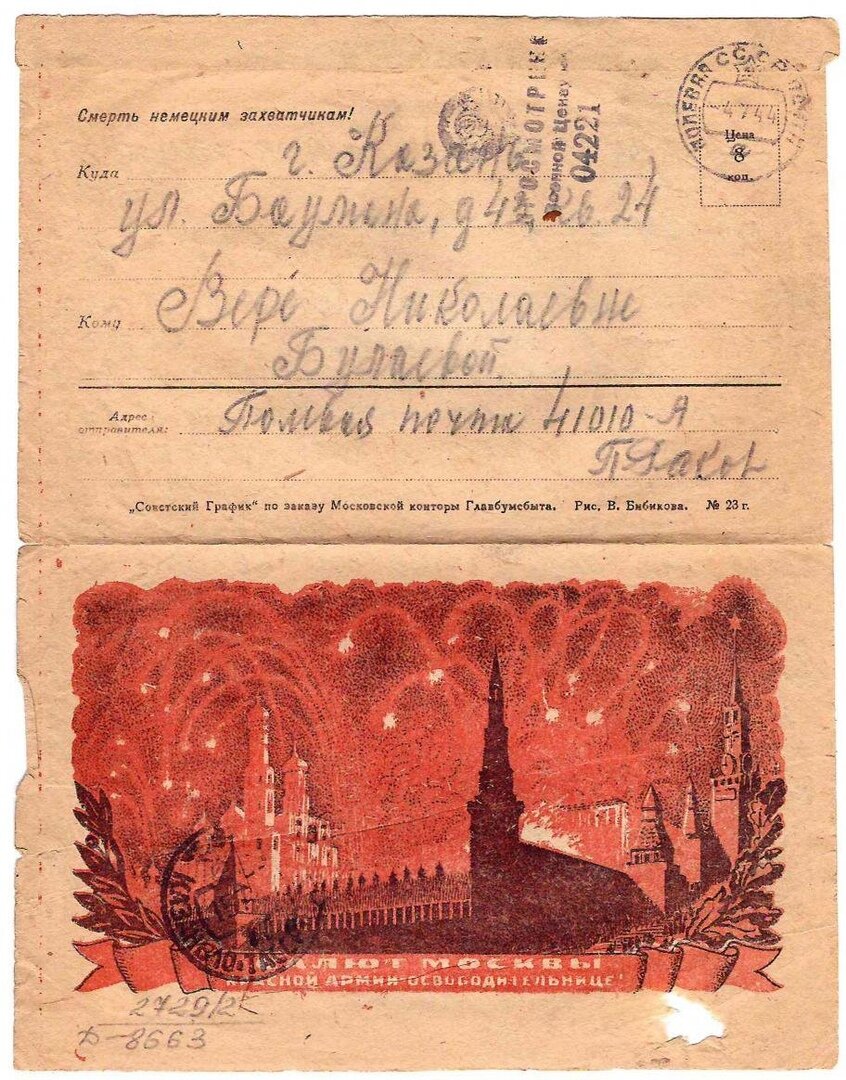 Смерть немецким захватчикам!
ПРОСМОТРЕНО
Военной Цензурой
04221
ПОЛЕВАЯ ПОЧТА
СССР
4 7 44
Цена
8
коп.
Куда г. Казань,
ул. Баумана, д 42, 24
Кому Вере Николаевне
Булаевой
Адрес отправителя: Полевая почта 41010-А
„Советский График“ по заказу Московской конторы Главбумсбыта. Рис. В. Бибикова. № 23 г.
САЛЮТ МОСКВЫ
КРАСНОЙ АРМИИ-ОСВОБОДИТЕЛЬНИЦЕ!
2729/2
8663